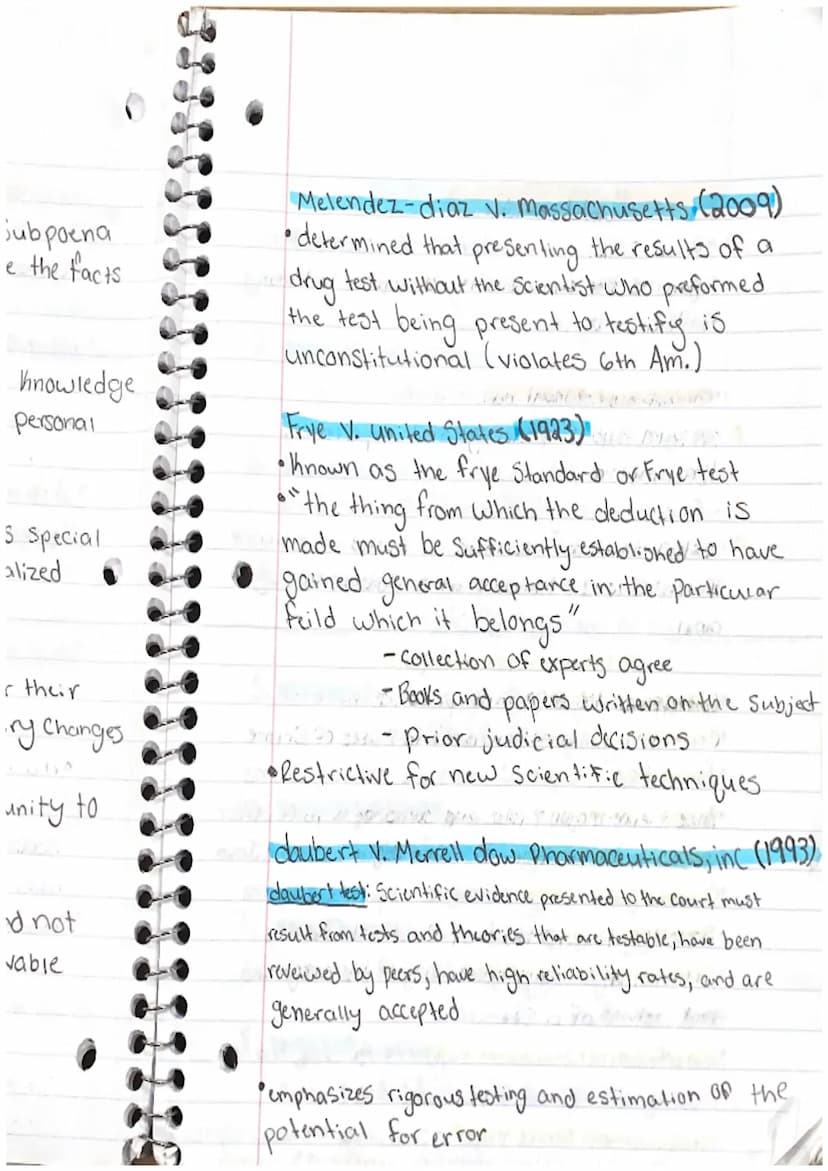 subpoena
e the facts
knowledge
personal
s special
alized
r their
ry changes
unity to
d not
vable
Melendez-diaz v. Massachusetts (2009)
•determined that presenting the results of a
drug test without the scientist who preformed
the test being present to testify is
unconstitutional (violates 6th Am.)
Frye v. united States (1923)
•known as the frye Standard or Frye test
•"the thing from which the deduction is
made must be sufficiently established to have
gained general acceptance in the particular
feild which it belongs"
- collection of experts agree
- Books and papers written on the subject
- prior judicial decisions
•Restrictive for new scientific techniques
daubert v. Merrell dow Pharmaceuticals, inc (1993)
daubert test: Scientific evidence presented to the court must
result from tests and theories that are testable, have been
reveiwed by peers, have high reliability rates, and are
generally accepted
•emphasizes rigorous testing and estimation of the
potential for error